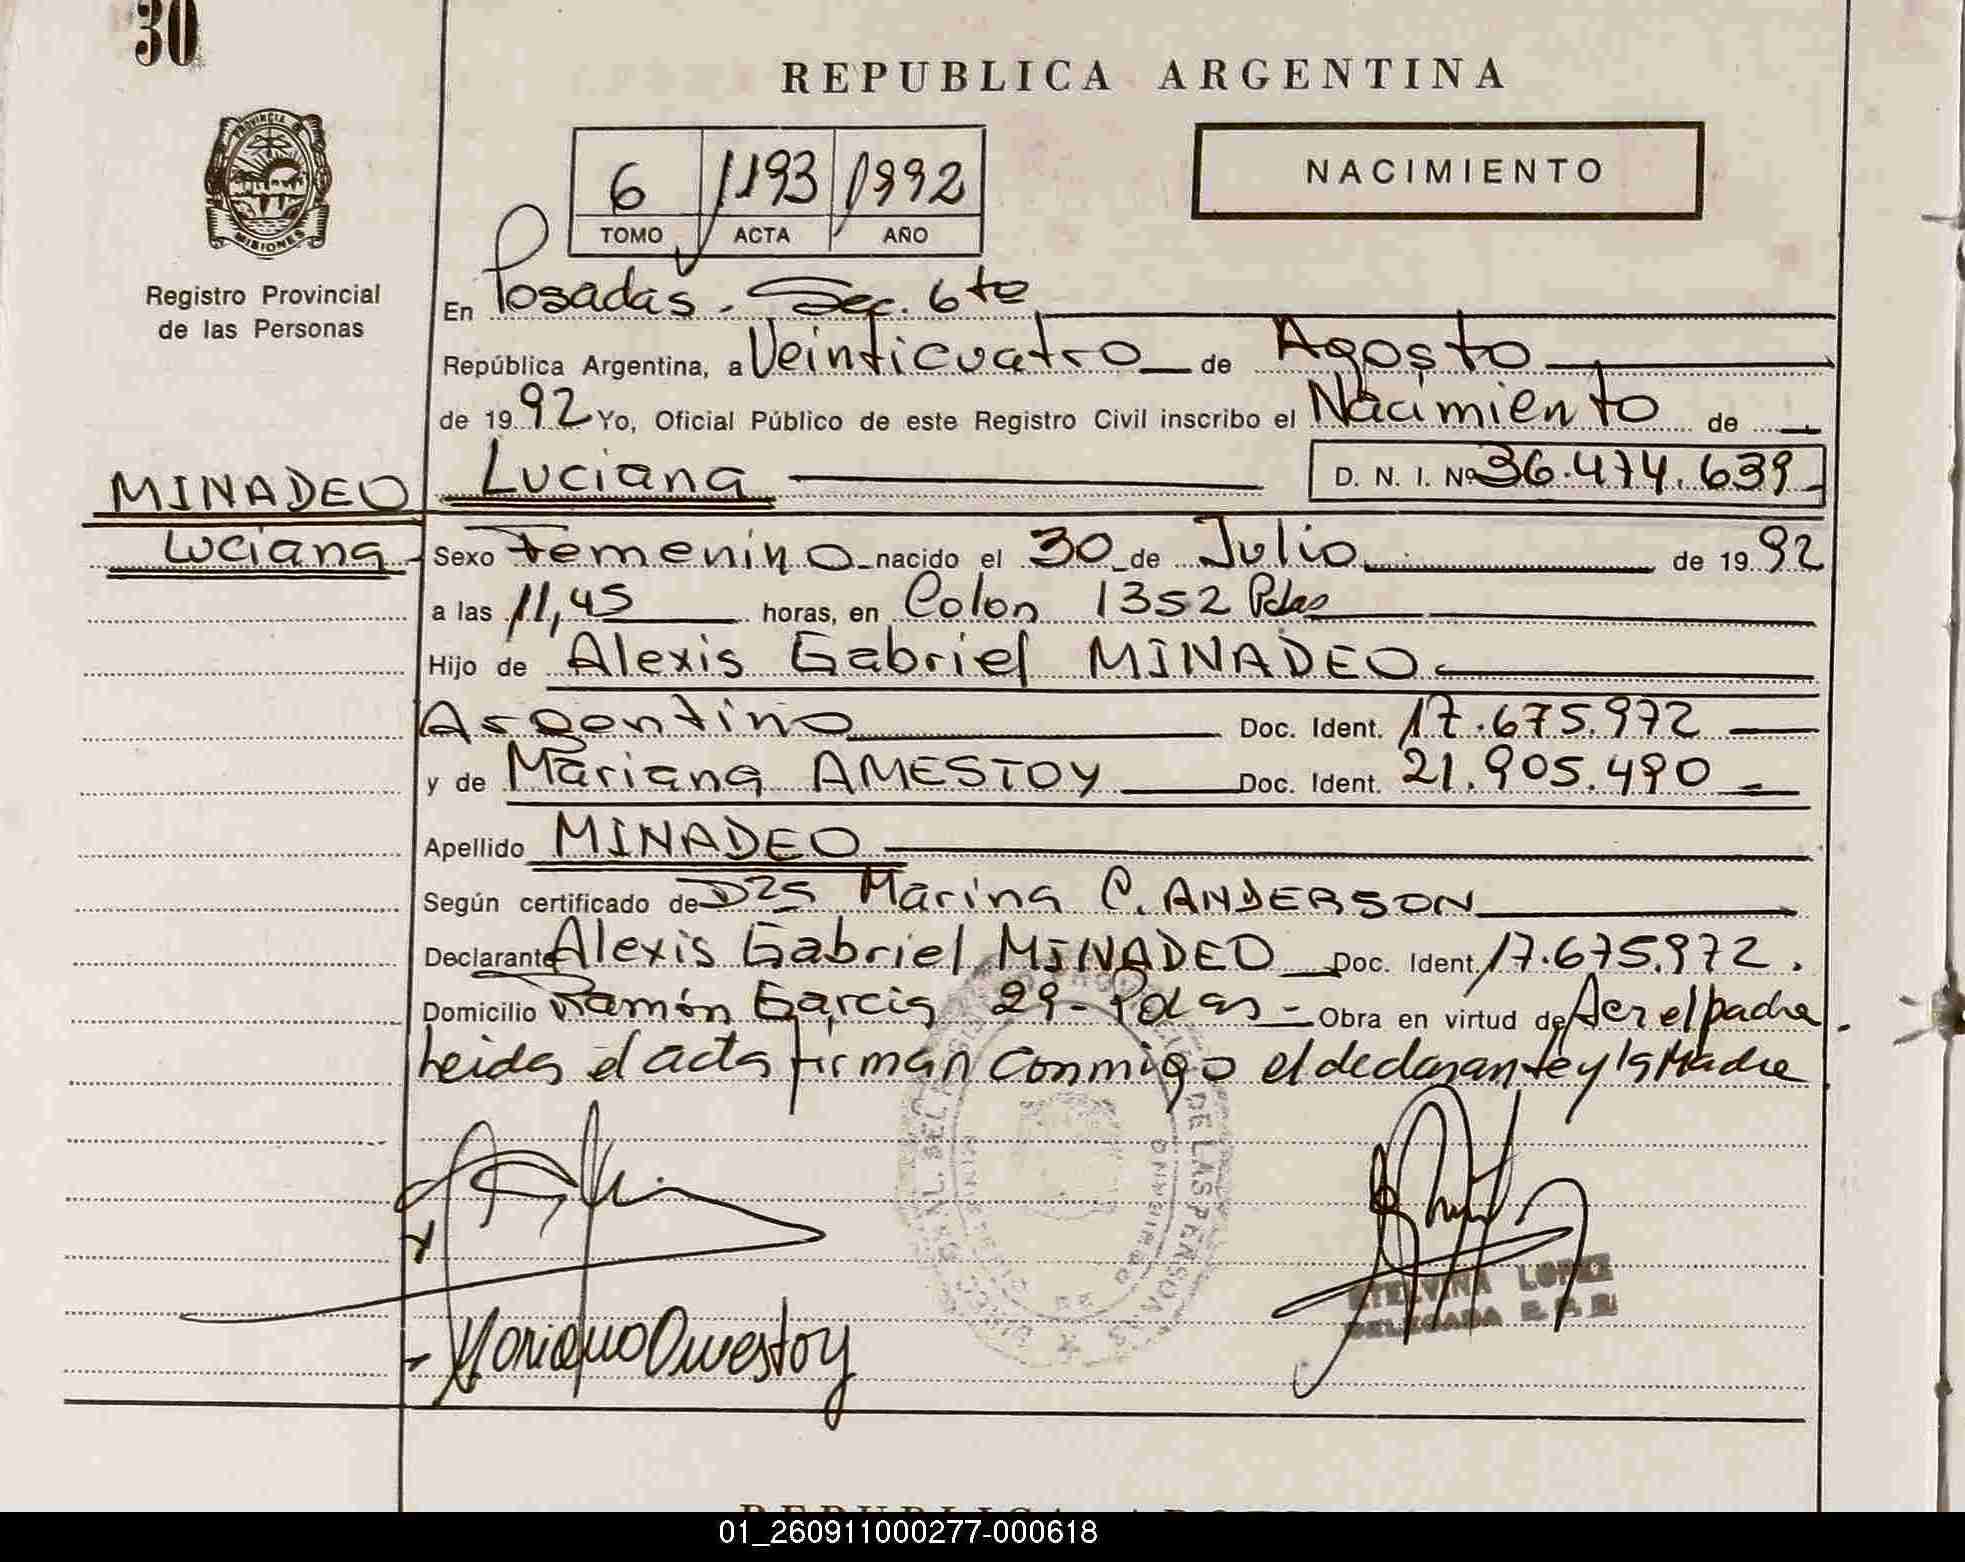 30
REPUBLICA ARGENTINA
PROVINCIA DE
MISIONES
Registro Provincial
de las Personas
6 1193 1992
TOMO ACTA AÑO
NACIMIENTO
En Posadas. Sec. 6ta
República Argentina, a Veinticuatro de Agosto
de 1992 Yo, Oficial Público de este Registro Civil inscribo el Nacimiento de
MINADEO
Luciana
Luciana D. N. I. Nº 36.474.639
Sexo Femenino nacido el 30 de Julio de 1992
a las 11,45 horas, en Colon 1352 Pdas
Hijo de Alexis Gabriel MINADEO
Argentino Doc. Ident. 17.675.972
y de Mariana AMESTOY Doc. Ident. 21.905.490
Apellido MINADEO
Según certificado de Dra Marina C. ANDERSON
Declarante Alexis Gabriel MINADEO Doc. Ident. 17.675.972.
Domicilio Ramón Garcia 29- Pdas - Obra en virtud de Ser el padre.
Leida el acta firman conmigo el declarante y la Madre
DE LAS PERSONAS
Mariana Amestoy
ETELVINA LOPEZ
DELEGADA
REPUBLICA
01_260911000277-000618